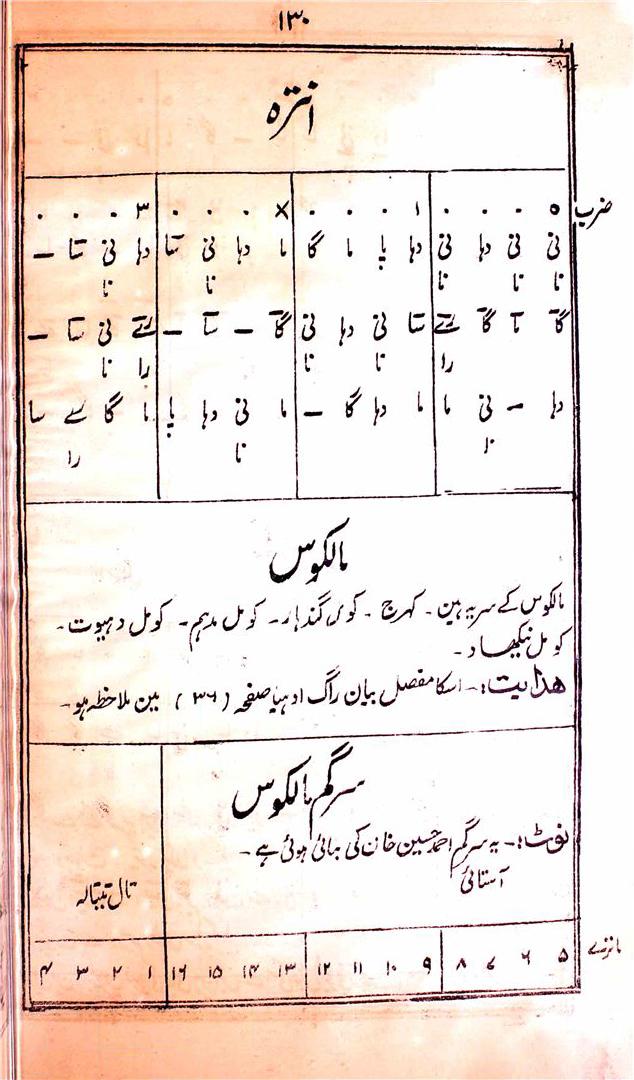 ۱۳۰
انترہ
ضرب
۵ . . . ۱ . . . X . . . ۳ . . .
نی نی دہا نی دہا پا ما گا ما دہا نی سا دہا نی سا –
نا نا نا نا نا
گا سا گا رے سا نی دہا نی گا – سا – رے نی سا –
را نا نا را نا
دہا – نی ما ما دہا گا – ما نی دہا پا ما گا رے سا
نا نا را
مالکوس
مالکوس کے سریہ ہین۔ کہرج ۔ کومل گندہار۔ کومل مدہم۔ کومل دہیوت۔
کومل نکھاد۔
ھدایت:۔ اسکا مفصل بیان راگ ادہیا صفحہ (۳۶) مین ملاحظہ ہو۔
سرگم مالکوس
نوٹ:۔ یہ سرگم احمد حسین خان کی بنائی ہوئی ہے۔
آستائی
تال تیتالہ
ماترے
۵ ۶ ۷ ۸ ۹ ۱۰ ۱۱ ۱۲ ۱۳ ۱۴ ۱۵ ۱۶ ۱ ۲ ۳ ۴